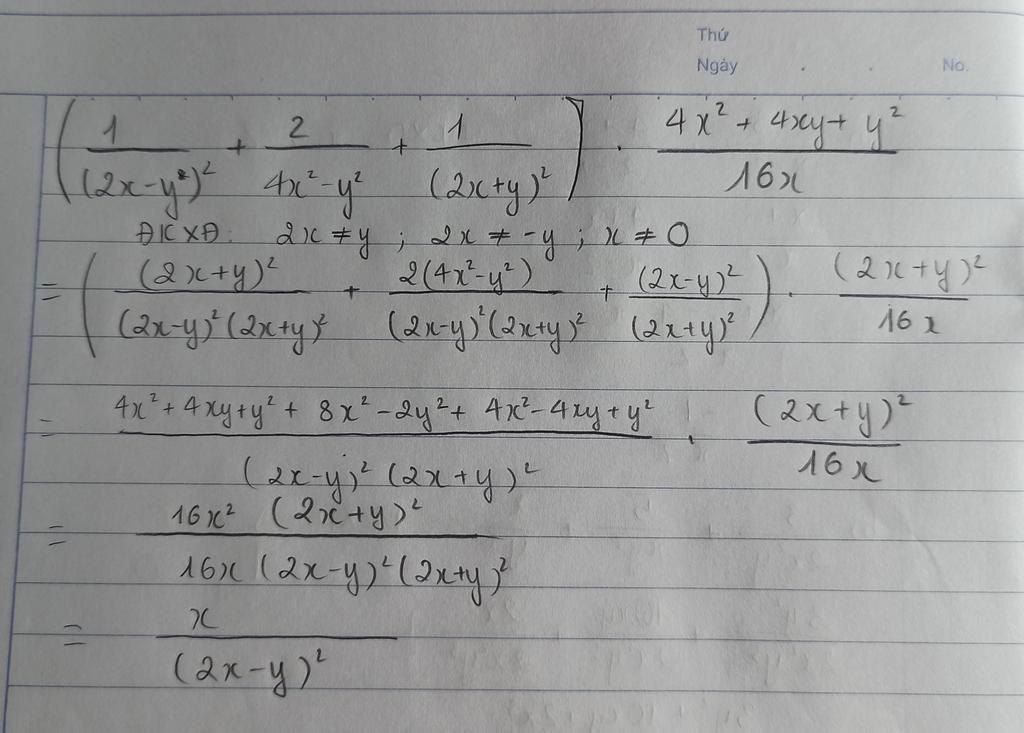 Thứ
Ngày . . No.
(1/(2x-y²)² + 2/(4x²-y²) + 1/(2x+y)²) . (4x² + 4xy + y²)/16x
ĐKXĐ: 2x ≠ y ; 2x ≠ -y ; x ≠ 0
= ((2x+y)²/((2x-y)²(2x+y)²) + 2(4x²-y²)/((2x-y)²(2x+y)²) + (2x-y)²/(2x+y)²) . (2x+y)²/16x
= (4x² + 4xy + y² + 8x² - 2y² + 4x² - 4xy + y²)/((2x-y)² (2x+y)²) . (2x+y)²/16x
= 16x² (2x+y)²/(16x (2x-y)² (2x+y)²)
= x/(2x-y)²